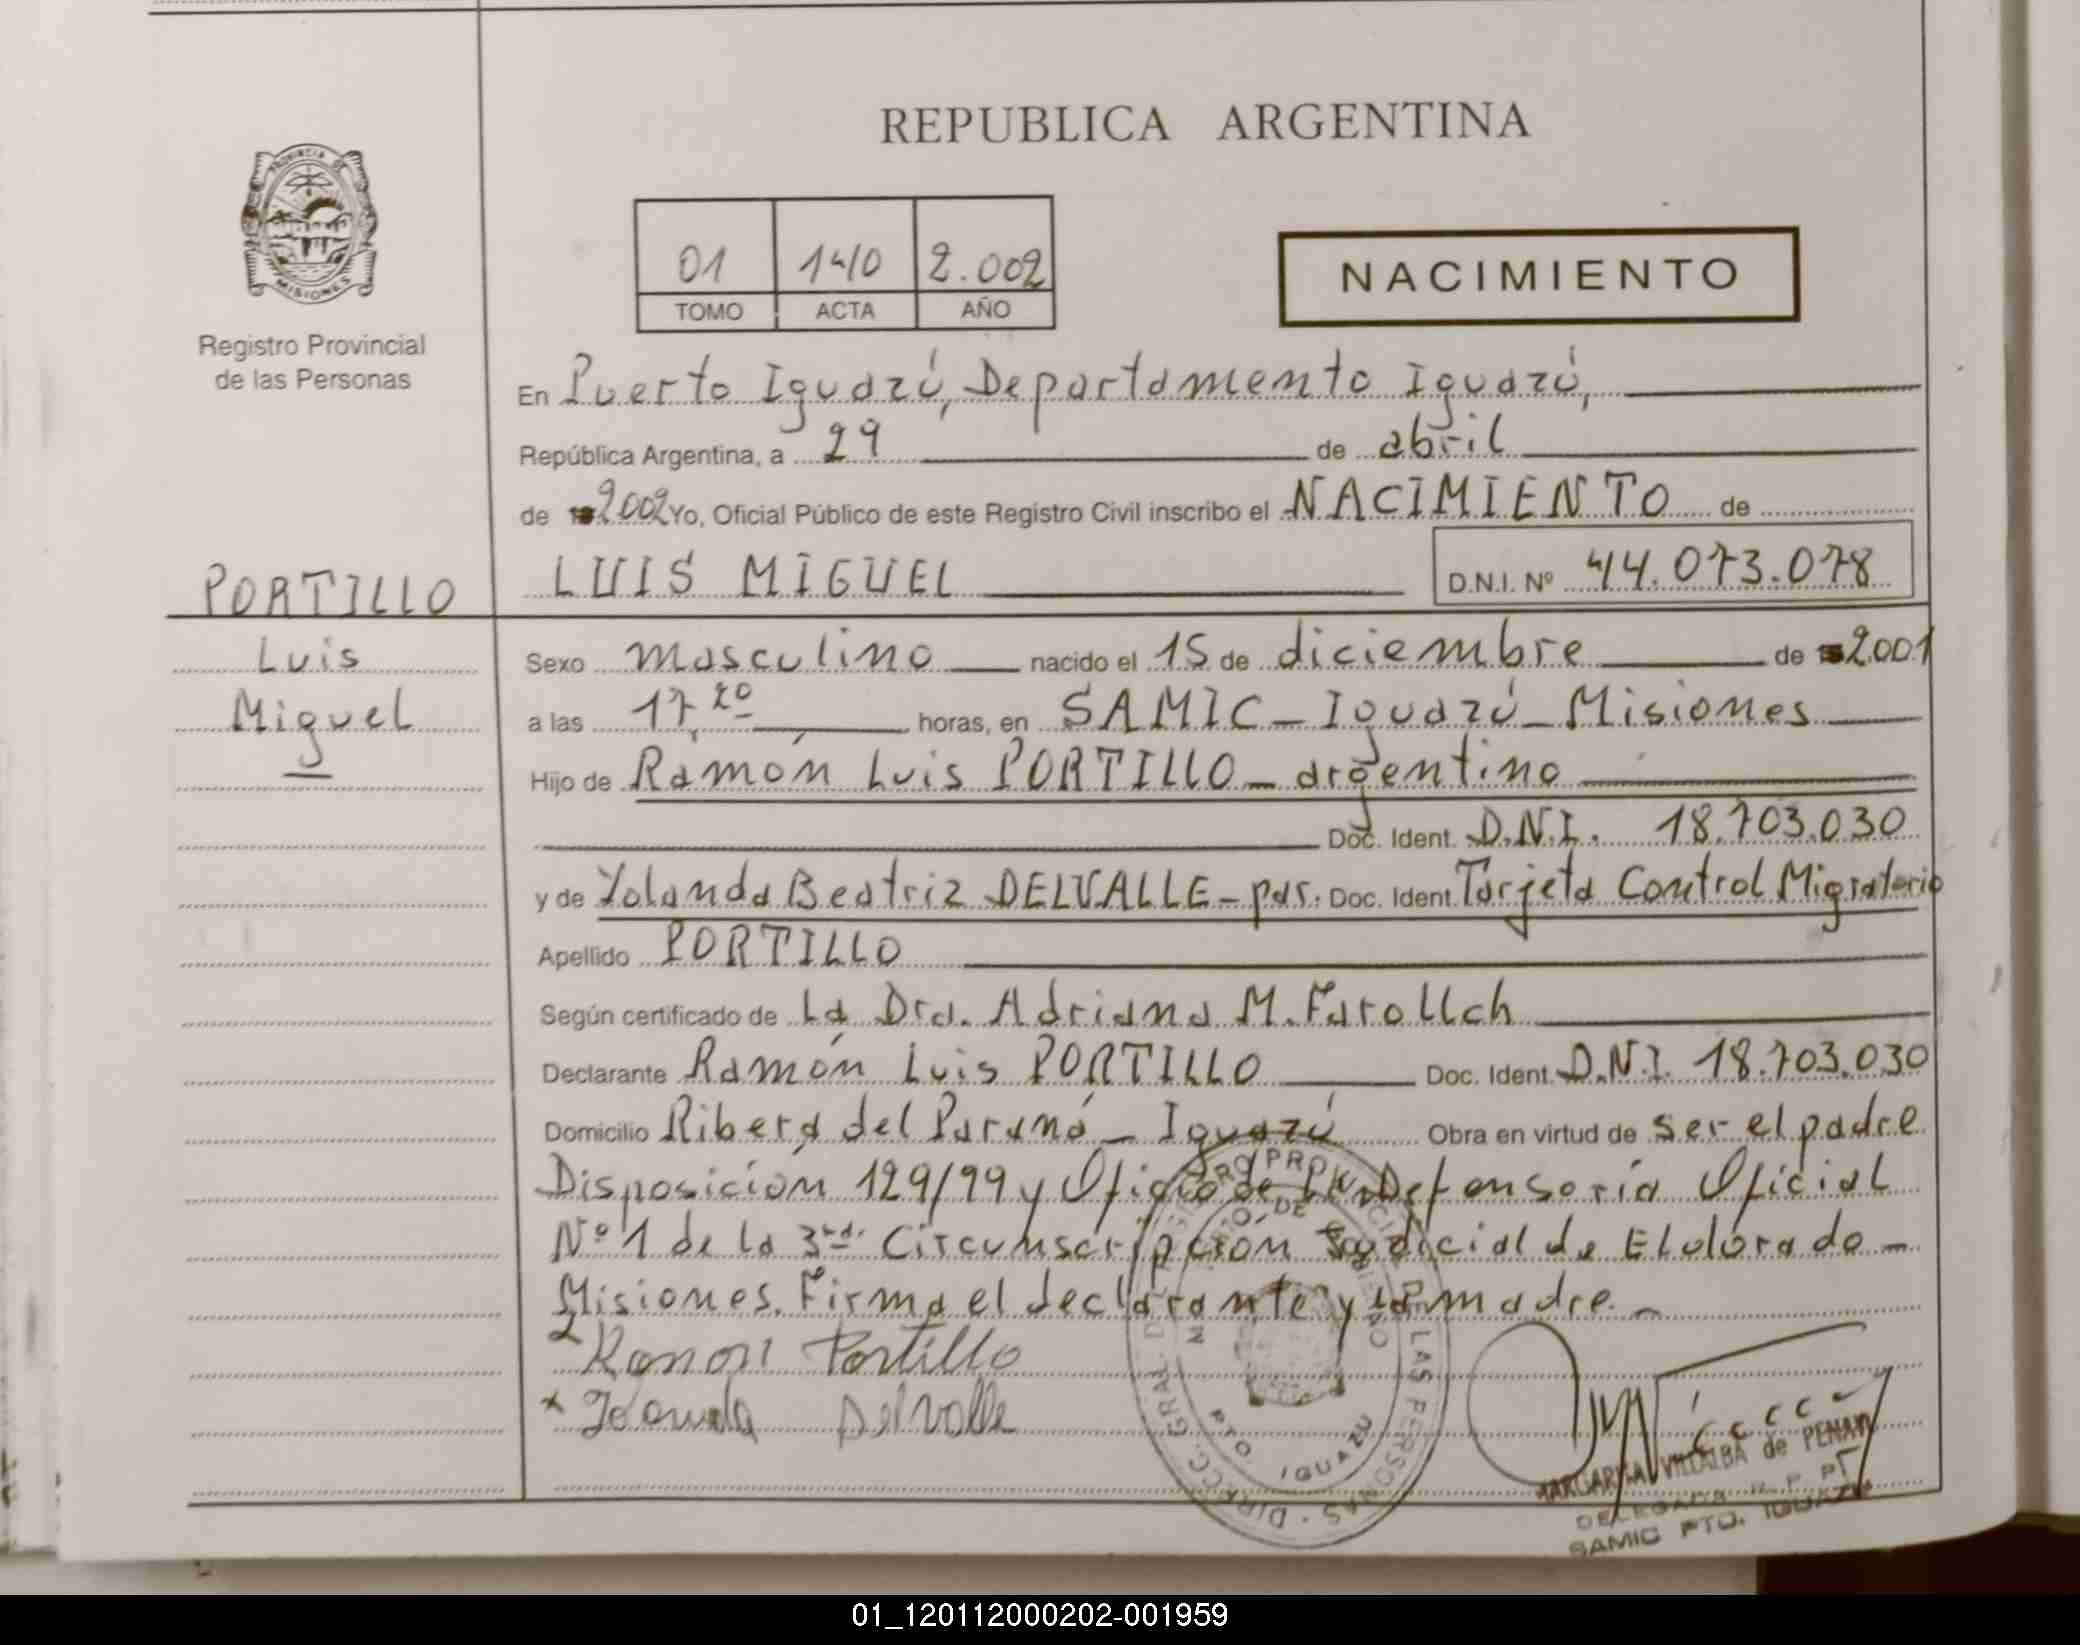 REPUBLICA ARGENTINA
PROVINCIA DE MISIONES
Registro Provincial
de las Personas
01 140 2.002
TOMO ACTA AÑO
NACIMIENTO
En Puerto Iguazú, Departamento Iguazú,
República Argentina, a 29 de abril
de 2002 Yo, Oficial Público de este Registro Civil inscribo el NACIMIENTO de
PORTILLO LUIS MIGUEL D.N.I. Nº 44.073.078
Luis Sexo masculino nacido el 15 de diciembre de 2001
Miguel a las 17,20 horas, en SAMIC - Iguazú - Misiones
Hijo de Ramón Luis PORTILLO - argentino
Doc. Ident. D.N.I. 18.703.030
y de Yolanda Beatriz DELVALLE - par. Doc. Ident. Tarjeta Control Migratorio
Apellido PORTILLO
Según certificado de La Dra. Adriana M. Farollch
Declarante Ramón Luis PORTILLO Doc. Ident. D.N.I. 18.703.030
Domicilio Ribera del Paraná - Iguazú Obra en virtud de ser el padre
Disposición 129/99 y Oficio de la Defensoría Oficial
Nº 1 de la 3ra. Circunscripción Judicial de Eldorado -
Misiones. Firma el declarante y la madre. -
Ramon Portillo
x Yolanda Delvalle
DIRECC. GRAL. DE LAS PERSONAS
PTO. IGUAZU
MARGARITA VILLALBA de PENAYO
DELEGADA R. P. P.
SAMIC PTO. IGUAZU
01_120112000202-001959